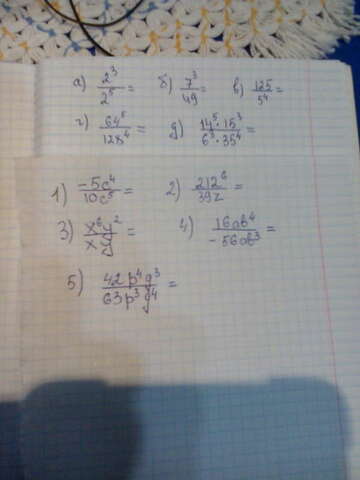 а) 2³/2⁵ = б) 7³/49 = в) 125/5⁴ =
г) 64⁵/128⁴ = д) 14⁵·15³/6³·35⁴ =
1) -5c⁴/10c⁵ = 2) 21z⁶/39z =
3) x⁶y²/xy = 4) 16ab⁴/-56ab³ =
5) 42p⁴q³/63p³q⁴ =